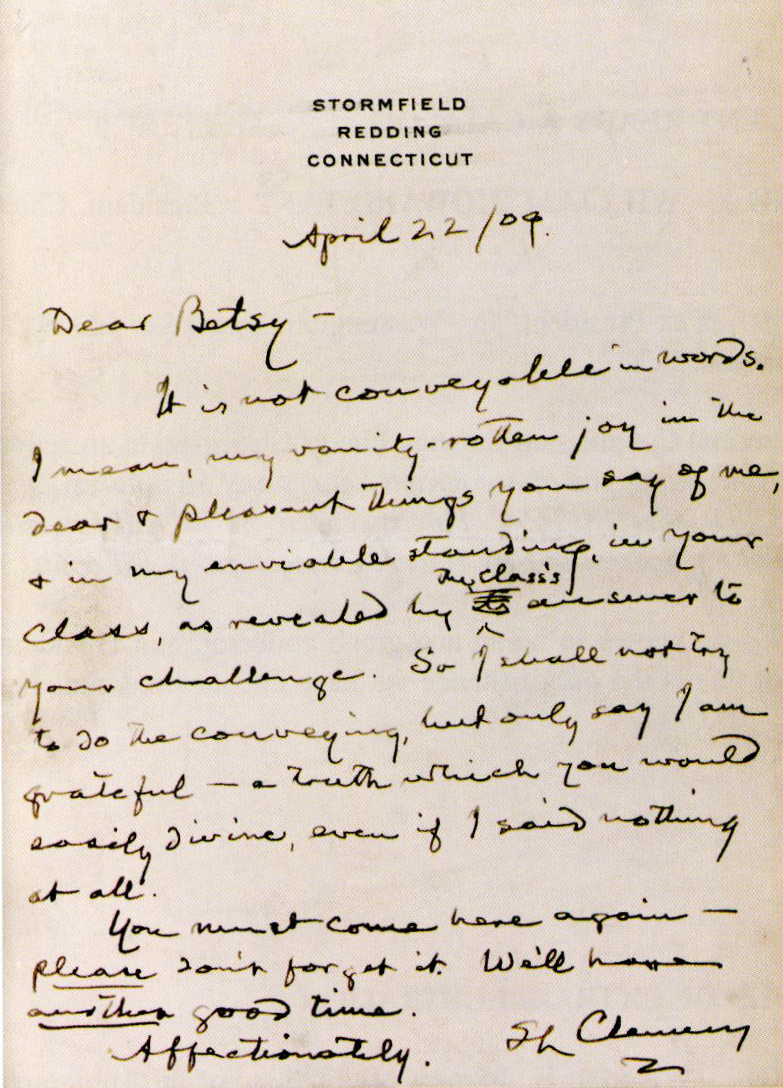 STORMFIELD
REDDING
CONNECTICUT
April 22/09.
Dear Betsy –
It is not conveyable in words.
I mean, my vanity-rotten joy in the
dear & pleasant things you say of me,
& in my enviable standing, in your
the class's
class, as revealed by answer to
your challenge. So I shall not try
to do the conveying, but only say I am
grateful – a truth which you would
easily divine, even if I said nothing
at all.
You must come here again –
please don't forget it. We'll have
another good time.
Affectionately.
SL Clemens